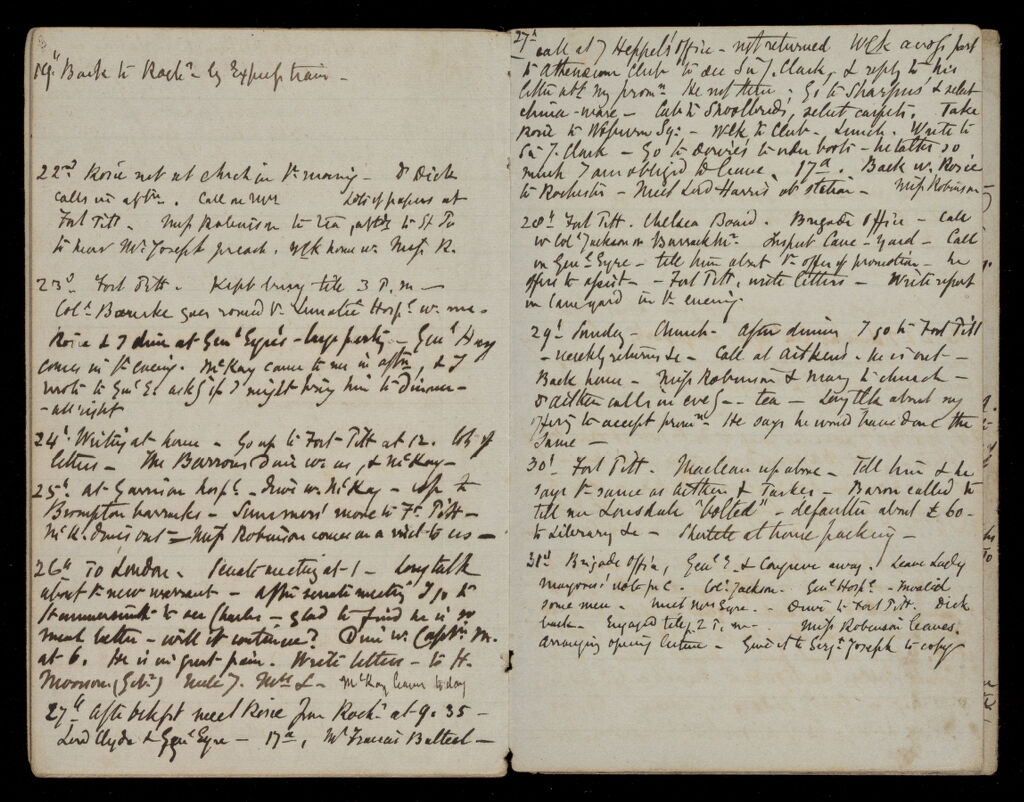 19th Back to Rochr by Express train –
22nd Rosie not at church in the morning – Dr Dick
calls in aftn. Call on Lots of papers at
Fort Pitt. Miss Robinson to tea, to St
to hear Mr Joseph preach. Wlk home w. Miss R.
23d Fort Pitt – Kept busy till 3 P.m –
Coll Bourke goes round the Lunatic Hospl w. me –
Rosie & I dine at Genl Eyre's – large party – Genl Hay
comes in the evening. McKay came to me in aftn, & I
wrote to Genl E. askg if I might bring him to Dinner –
– all right
24t Writing at home – Go up to Fort Pitt at 12. Lots of
letters – The Barrows dine w. us, & McKay –
25t at Garrison hospl – Drive w. McKay – up to
Brompton barracks – Summers' move to Ft. Pitt –
McK. dines out – Miss Robinson comes on a visit to us –
26th To London – Senate meeting at 1 – Long talk
about the new warrant – After senate meeting I go to
Hammersmith to see Charles – glad to find he is so
much better – will it continue? Dine w. Captn M.
at 6. He is in great pain. Write letters – to H.
Moorsom (Gibr) Mrs L – McKay leaves today
27th After bekfst meet Rosie from Rochr at 9.35 –
Lord Clyde & Genl Eyre – 17a, Mr Francis Balteel –
27th call at J Heppel's office – not returned Wlk across park
to Athenaeum Club to see Sir J. Clark, & reply to his
letter abt my promn. He not there – Go to Sharpus' & select
china-ware – Cab to Shoolbreds, select carpets. Take
Rosie to Woburn Sq: – Wlk to Club – Lunch. Write to
Sir J. Clark – Go to Dowie's to order boots – he talks so
much I am obliged to leave. 17a. Back w. Rosie
to Rochester – Meet Lord Harris at station – Miss Robinson –
28t Fort Pitt. Chelsea Board. Brigade Office – call
w Coll Jackson on Barrackmr. Inspect Lane-yard – Call
on Genl Eyre – tell him about the offer of promotion – he
offers to assist – – Fort Pitt, write letters – Write report
on Lane yard in the evening.
29t Sunday – Church – After dinner I go to Fort Pitt
– weekly returns &c – Call at Aitken's – he is out –
Back home – Miss Robinson & Mary to church –
Dr Aitken calls in eveg – – tea – Long tlk about my
offerg to accept promn. He says he would have done the
same –
30t Fort Pitt. Maclean up above – Tell him & he
says the same as Aitken & Parkes – Baron called to
tell me Lonsdale "bolted" – defaulter about £60 –
to Library &c – Shortete at home packing –
31st Brigade Office, Genl E. & Congreve away. Leave Lady
note for C. Coll Jackson. Genl Hospl – Invalid
some men – meet Mrs Eyre. – Drive to Fort Pitt. Dick
back – Engaged till ½ p. 2 P.m –. Miss Robinson leaves.
arranging opening lecture – Give it to Sergt Joseph to copy